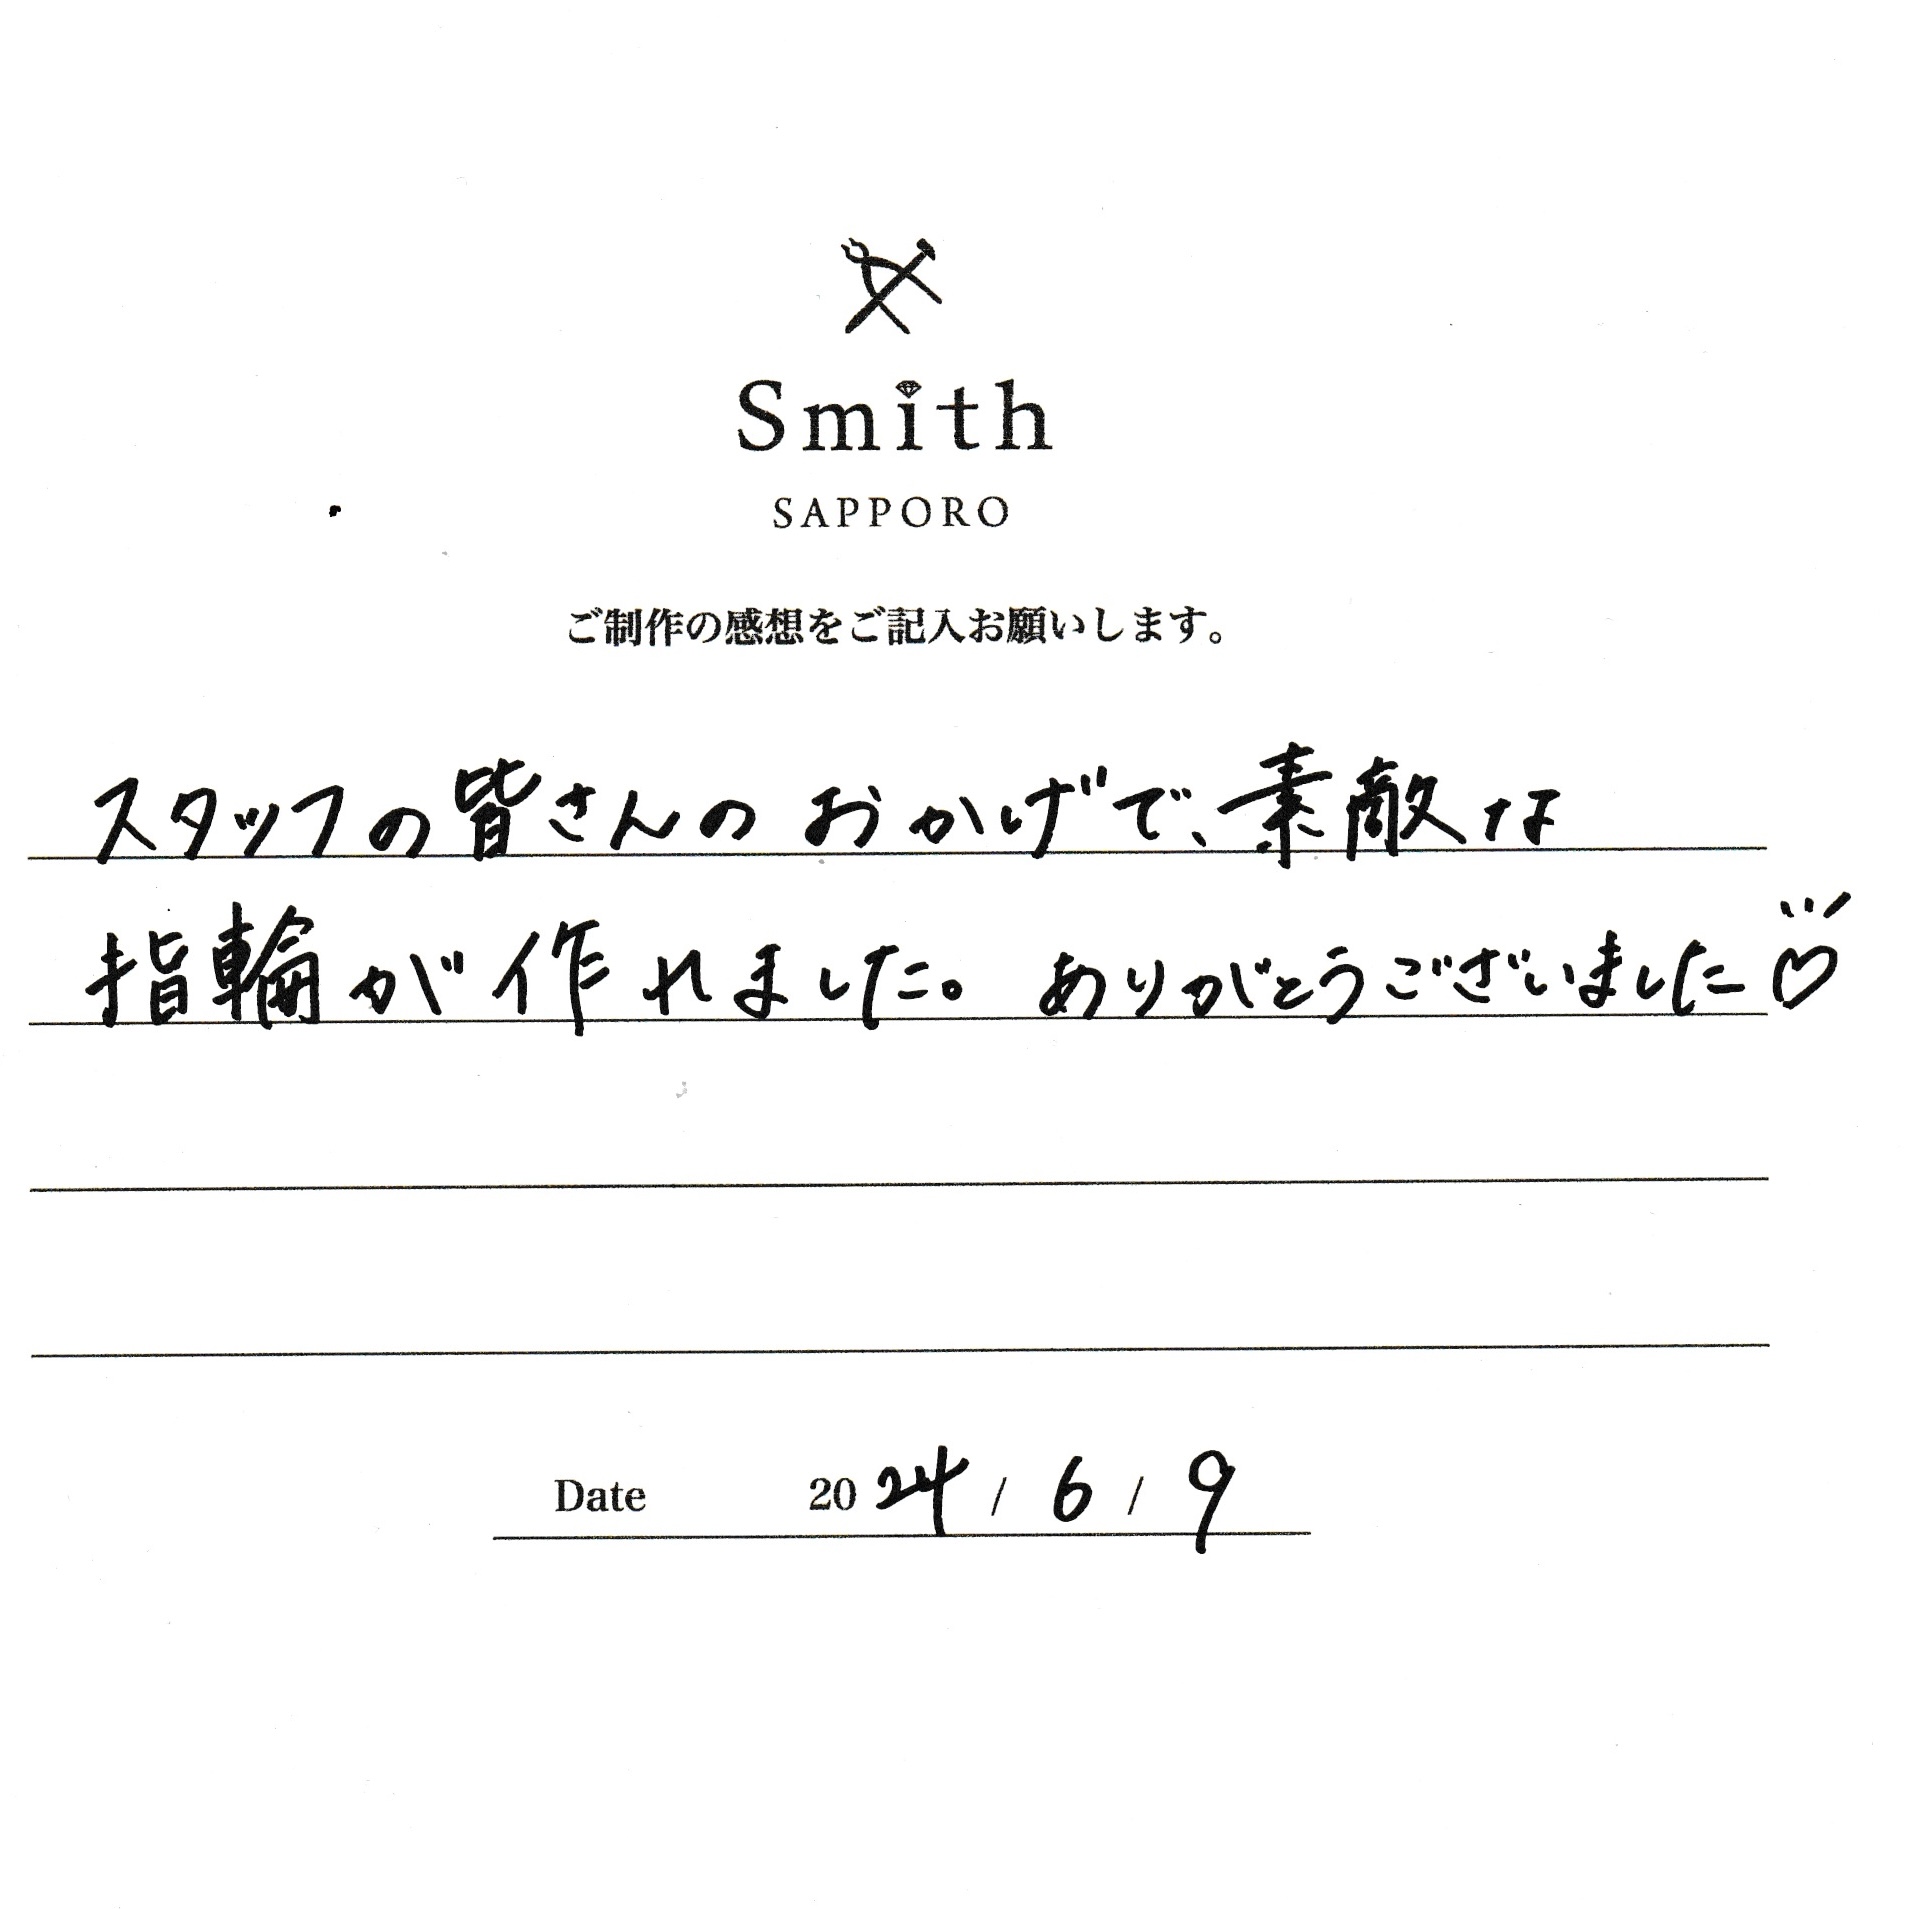 Smith
SAPPORO
ご制作の感想をご記入お願いします。
スタッフの皆さんのおかげで、素敵な
指輪が作れました。ありがとうございました♡
Date 2024 / 6 / 9